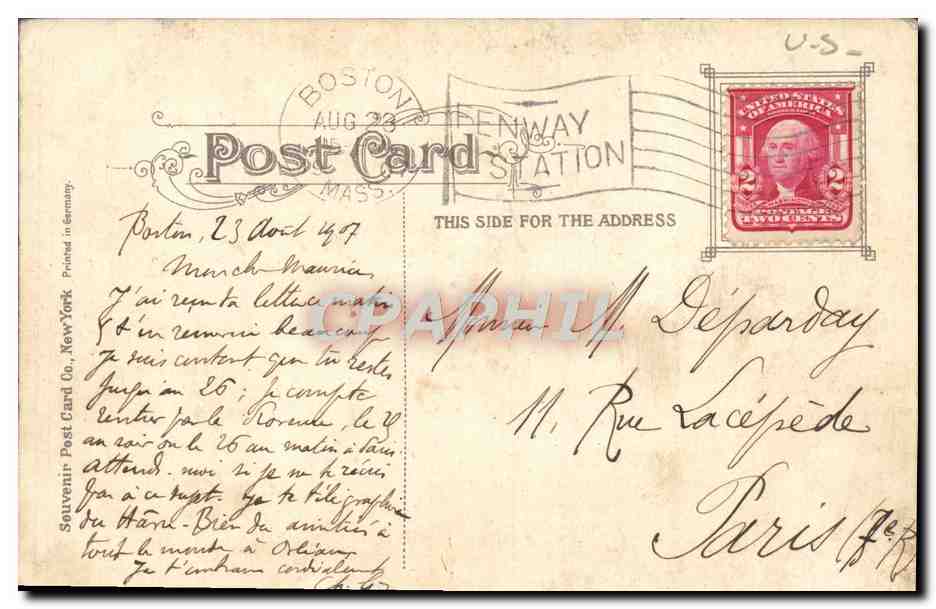 U-S-
BOSTON
AUG 23
MASS.
FENWAY
STATION
UNITED STATES
OF AMERICA
2 2
POSTAGE
TWO CENTS
Post Card
THIS SIDE FOR THE ADDRESS
Souvenir Post Card Co., New York Printed in Germany.
Boston, 23 Août 1907
Mon cher Maurice,
J'ai reçu ta lettre ce matin
& t'en remercie beaucoup
Je suis content que tu restes
jusqu'au 26 ; je compte
rentrer par la le 25
au soir ou le 26 au matin à Paris
attends-moi si je ne t'écris
pas à ce sujet. Je te télégraphierai
du Hâvre - Bien des amitiés à
tout le monde à Orléans
Je t'embrasse cordialement
Monsieur M. Déparday
11, Rue Lacépède
Paris (
CPAPHIL